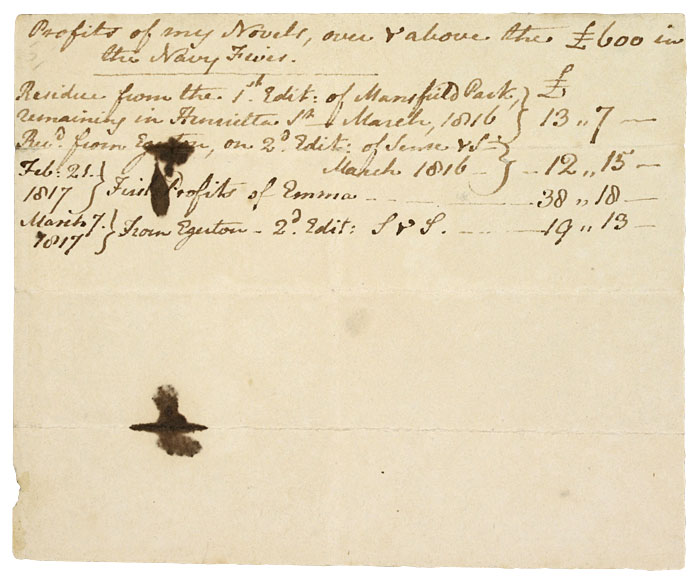 Profits of my Novels, over & above the £600 in
the Navy Fives.
£
Residue from the 1st. Edit: of Mansfield Park,
remaining in Henrietta St. March, 1816 } 13 „ 7 —
Recd. from Egerton, on 2d. Edit: of Sense & S—
March 1816 — } .. 12 „ 15 —
Feb: 21. }
1817 } First Profits of Emma — 38 „ 18 —
March 7. }
1817 } From Egerton — 2d. Edit: S & S. — 19 „ 13 —